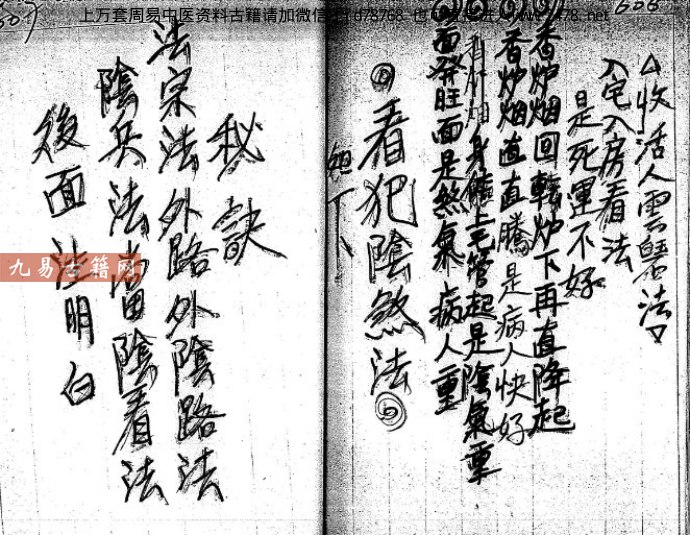 上万套周易中医资料古籍请加微信
.net
△收活人雲魂法
入宅入房看法
是死運不好
香炉烟回轉炉下再直降起
香炉烟直直騰是病人快好
看炉烟身體毛管起是陰氣重
面發旺面是煞氣病人重
看犯陰煞法
如下
秘訣
法宗法外路外陰路法
陰兵法當陰看法
後面注明白
九易古籍网